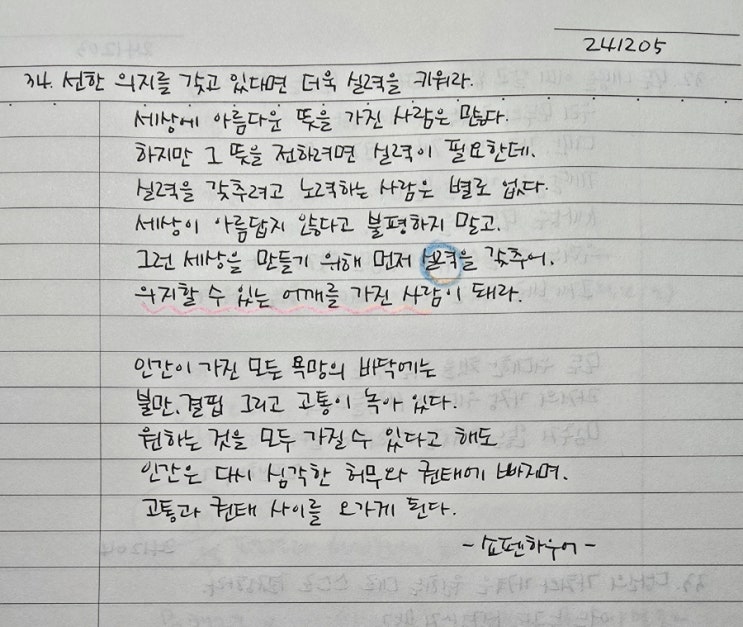 241205
34. 선한 의지를 갖고 있다면 더욱 실력을 키워라.
세상에 아름다운 뜻을 가진 사람은 많다.
하지만 그 뜻을 전하려면 실력이 필요한데,
실력을 갖추려고 노력하는 사람은 별로 없다.
세상이 아름답지 않다고 불평하지 말고,
그런 세상을 만들기 위해 먼저 실력을 갖추어,
의지할 수 있는 어깨를 가진 사람이 돼라.
인간이 가진 모든 욕망의 바닥에는
불만, 결핍 그리고 고통이 녹아 있다.
원하는 것을 모두 가질 수 있다고 해도
인간은 다시 심각한 허무와 권태에 빠지며,
고통과 권태 사이를 오가게 된다.
-쇼펜하우어-